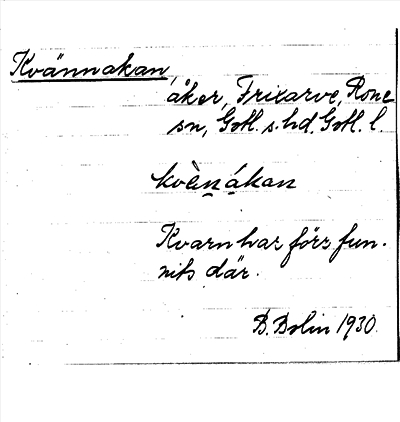 Kvännakan,
åker, Frixarve, Rone
sn, Gotl. s. hd. Gotl. l.
kvèn̯ák̯an
Kvarn har förr fun-
nits där.
B. Bolin 1930.